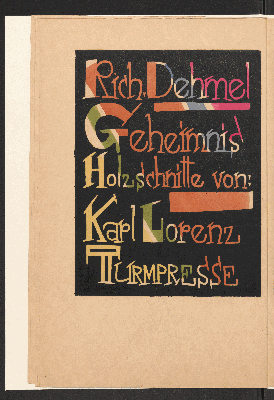 Rich. Dehmel
Geheimnis
Holzschnitte von:
Karl Lorenz
TURMPRESSE